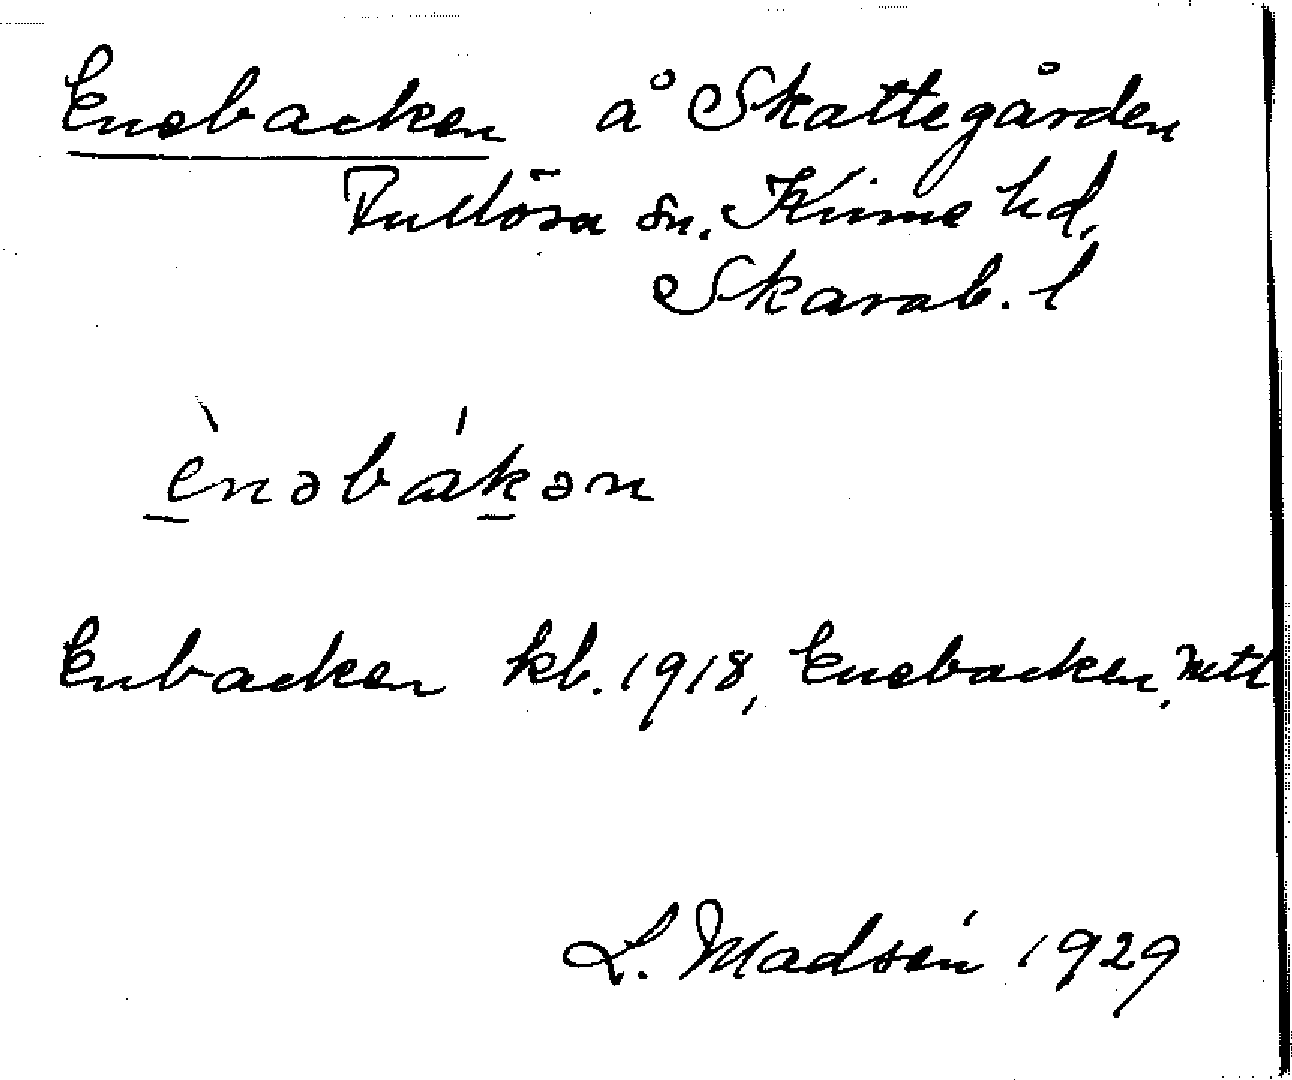 Enebacken å Skattegården
Fullösa sn. Kinne hd,
Skarab. l
ènəbákən
Enbacken kb. 1918, Enebacken, Mtt
L. Madsén 1929